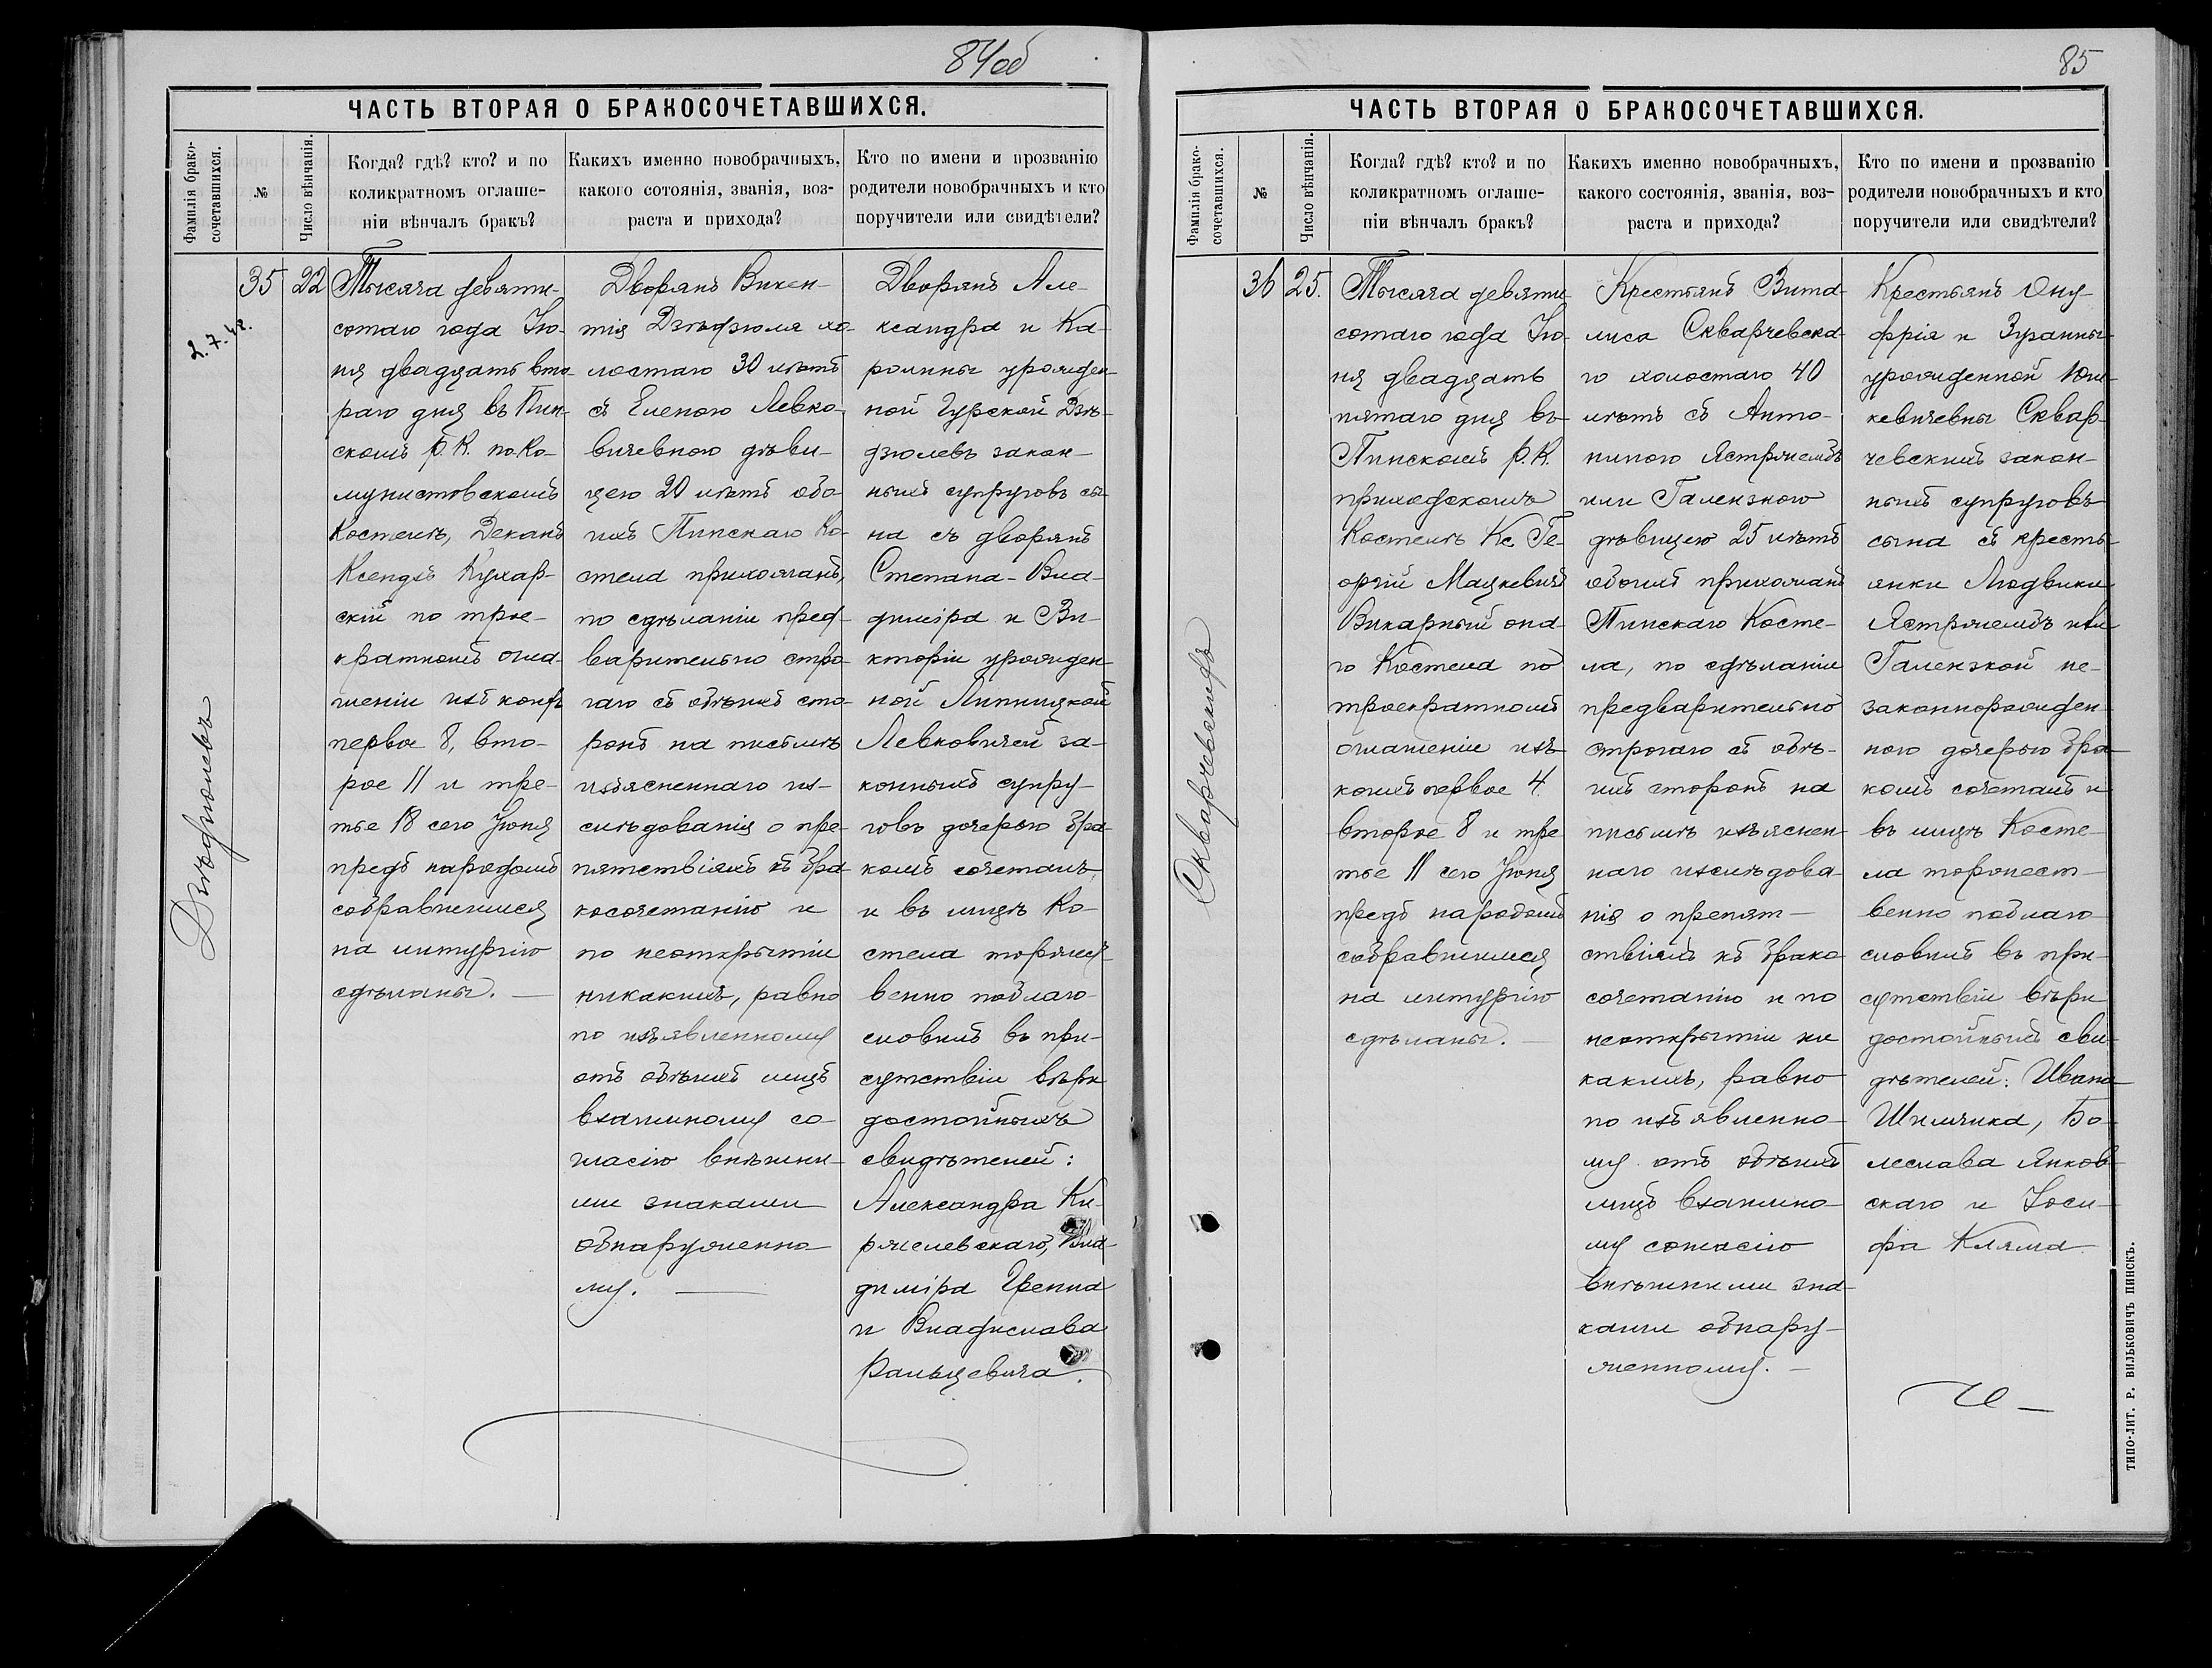 84об
ЧАСТЬ ВТОРАЯ О БРАКОСОЧЕТАВШИХСЯ.
Фамилія брако-
сочетавшихся.
№
Число вѣнчанія.
Когда? гдѣ? кто? и по
коликратномъ оглаше-
ніи вѣнчалъ бракъ?
Какихъ именно новобрачныхъ,
какого сотоянія, званія, воз-
раста и прихода?
Кто по имени и прозванію
родители новобрачныхъ и кто
поручители или свидѣтели?
35
22
Тысяча девяти-
сотаго года Ію-
ня двадцать вто-
раго дня въ Пин-
скомъ Р. К. по-Ко-
мунистовскомъ
Костелѣ, Деканъ
Ксендзъ Кухар-
скій по трое-
кратномъ огла-
шеніи изъ коихъ
первое 8, вто-
рое 11 и тре-
тье 18 сего Іюня
предъ народомъ
собравшимся
на литургію
сдѣланы. —
Дворянъ Викен-
тія Дзѣдзюля хо-
лостаго 30 лѣтъ
съ Еленою Левко-
вичевною дѣви-
цею 20 лѣтъ обо-
ихъ Пинскаго Ко-
стела прихожанъ,
по сдѣланіи пред-
варительно стро-
гаго съ обѣихъ сто-
ронъ на письмѣ
изъясненнаго из-
слѣдованія о пре-
пятствіяхъ къ бра-
косочетанію и
по неоткрытіи
никакихъ, равно
по изъявленному
отъ обѣихъ лицъ
взаимному со-
гласію внѣшни-
ми знаками
обнаруженно-
му. —
Дворянъ Але-
ксандра и Ка-
ролины урожден-
ной Гурской Дзѣ-
дзюлевъ закон-
ныхъ супруговъ сы-
на съ дворянъ
Степана-Вла-
диміра и Ви-
кторіи урожден-
ной Липницкой
Левковичей за-
конныхъ супру-
говъ дочерью бра-
комъ сочеталъ
и въ лицѣ Ко-
стела торжест-
венно поблаго-
словилъ въ при-
сутствіи вѣри
достойныхъ
свидѣтелей:
Александра Ки-
ржелевскаго, Вла-
диміра Гренна
и Владислава
Ральцевича.
Дзѣдзюлевъ
85
ЧАСТЬ ВТОРАЯ О БРАКОСОЧЕТАВШИХСЯ.
Фамилія брако-
сочетавшихся.
№
Число вѣнчанія.
Когда? гдѣ? кто? и по
коликратномъ оглаше-
ніи вѣнчалъ бракъ?
Какихъ именно новобрачныхъ,
какого состоянія, званія, воз-
раста и прихода?
Кто по имени и прозванію
родители новобрачныхъ и кто
поручители или свидѣтели?
36
25.
Тысяча девяти-
сотаго года Ію-
ня двадцать
пятаго дня въ
Пинскомъ Р. К.
приходскомъ
Костелѣ Кс Ге-
оргій Мацкевичъ
Викарный она-
го Костела по
троекратномъ
оглашеніи изъ
коихъ первое 4.
второе 8 и тре
тье 11 сего Іюня
предъ народомъ
собравшимся
на литургію
сдѣланы. —
Крестьянъ Вита-
лиса Скварчевска-
го холостаго 40
лѣтъ съ Анто-
ниною Ястржембъ
или Галензкою
дѣвицею 25 лѣтъ
обоихъ прихожанъ
Пинскаго Косте-
ла, по сдѣланіи
предварительно
строгаго съ обѣ-
ихъ сторонъ на
письмѣ изъяснен-
наго изслѣдова-
нія о препят-
ствіяхъ къ брако-
сочетанію и по
неоткрытіи ни
какихъ, равно
по изъявленно-
му отъ обѣихъ
лицъ взаимно-
му согласію
внѣшними зна-
ками обнару-
женному. —
Крестьянъ Ону-
фрія и Зузанны
урожденной Юш-
кевичевны Сквар-
чевскихъ закон-
ныхъ супруговъ
сына съ кресть-
янки Людвики
Ястржембъ или
Галензкой не-
законнорожден-
ною дочерью бра-
комъ сочеталъ и
въ лицѣ Косте-
ла торжест-
венно поблаго-
словилъ въ при-
сутствіи вѣри
достойныхъ сви-
дѣтелей: Ивана
Шимчика, Бо-
леслава Янков-
скаго и Іоси-
фа Кляма
Скварчевскихъ
ТИПО-ЛИТ. Р. ВИЛЬКОВИЧЪ ПИНСКЪ.